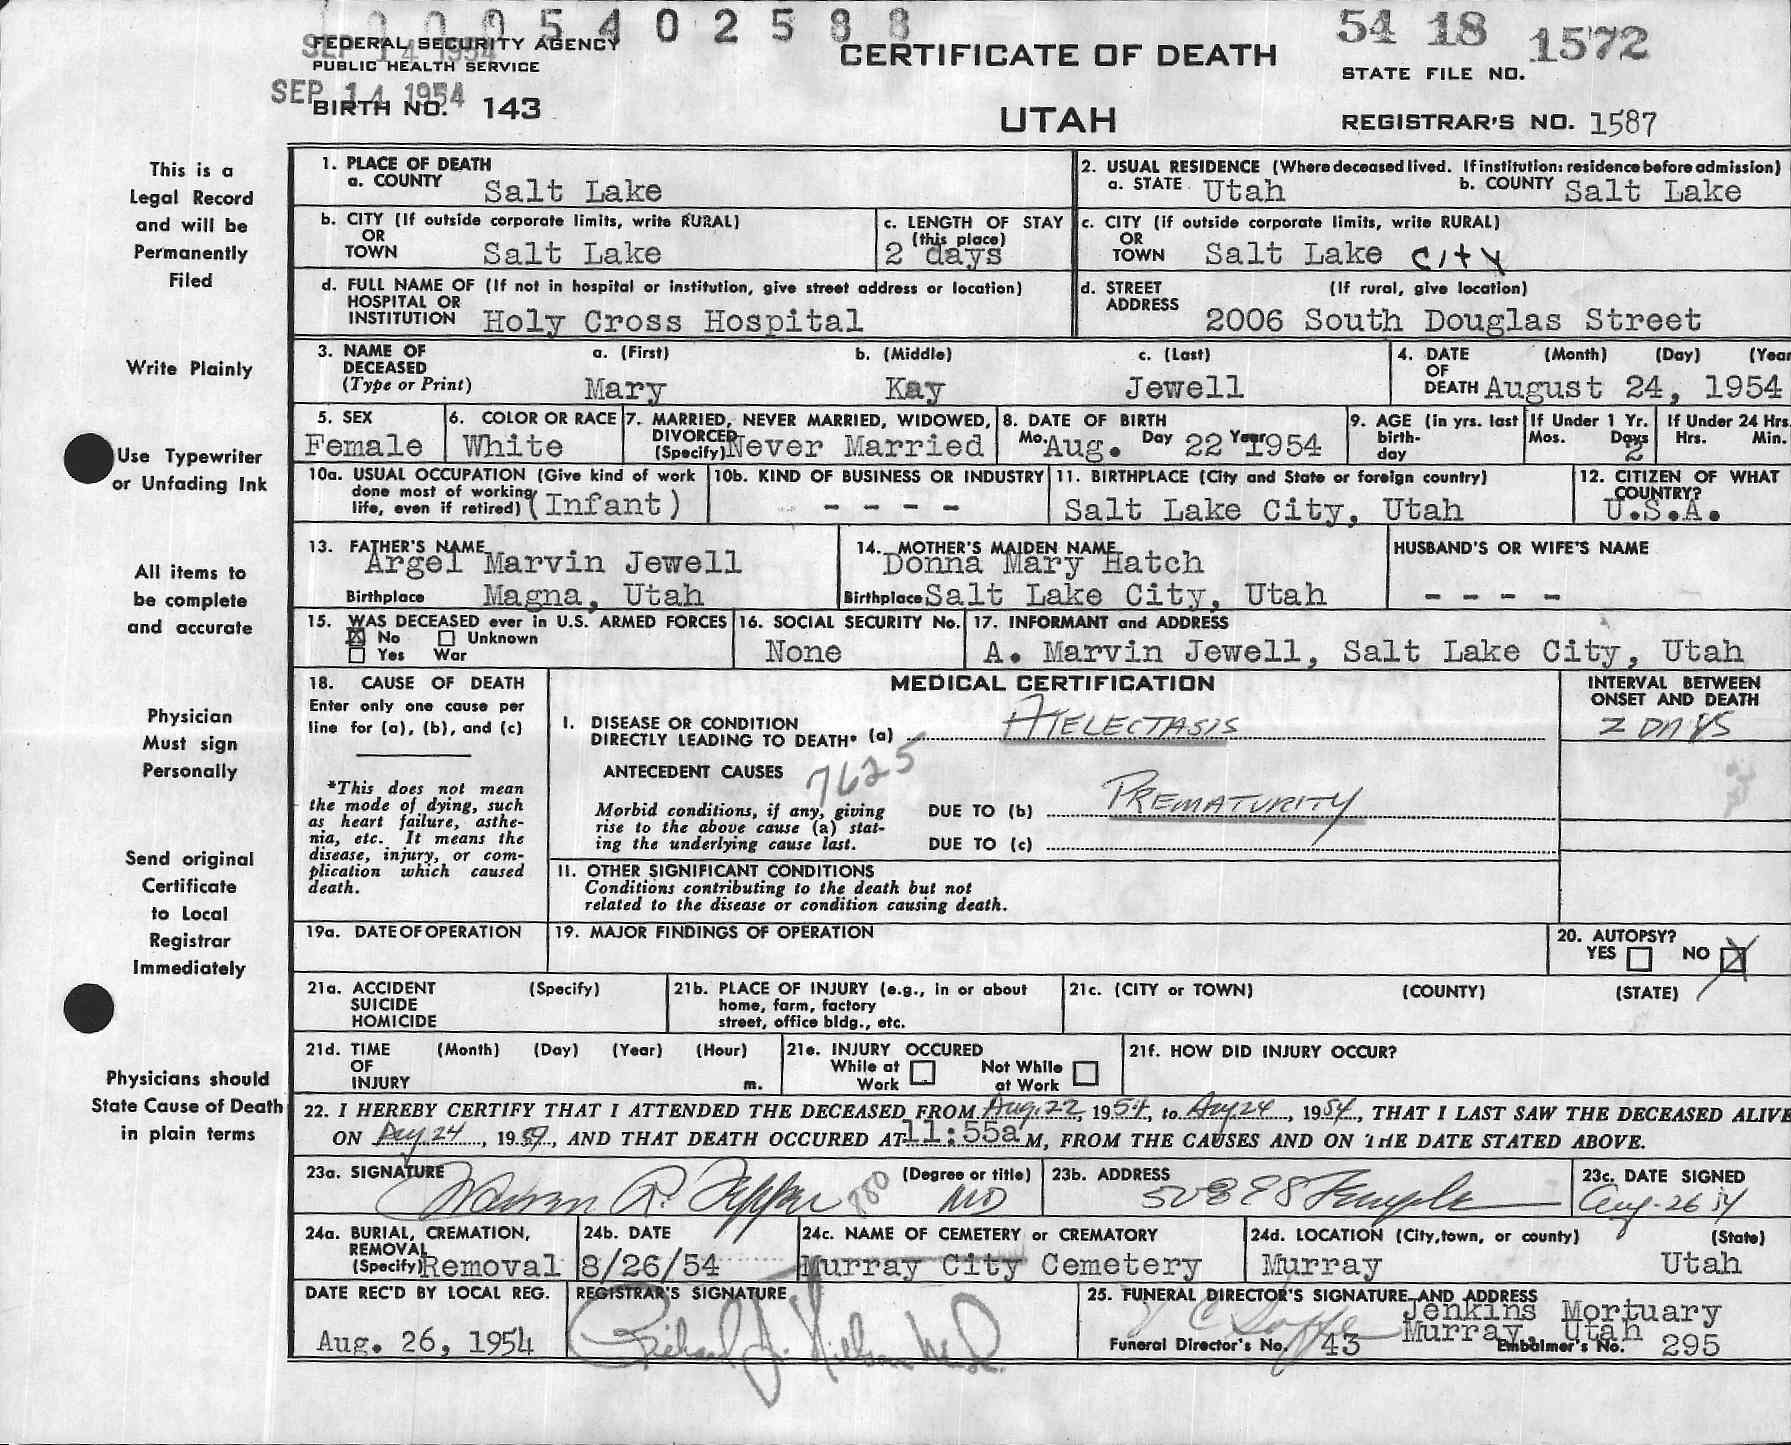 1 0 0 0 5 4 0 2 5 8 8
54 18 1572
FEDERAL SECURITY AGENCY
SEP 14 1954
PUBLIC HEALTH SERVICE
CERTIFICATE OF DEATH
STATE FILE NO.
SEP 14 1954
BIRTH NO. 143
UTAH
REGISTRAR'S NO. 1587
This is a
Legal Record
and will be
Permanently
Filed
Write Plainly
Use Typewriter
or Unfading Ink
All items to
be complete
and accurate
Physician
Must sign
Personally
Send original
Certificate
to Local
Registrar
Immediately
Physicians should
State Cause of Death
in plain terms
1. PLACE OF DEATH
a. COUNTY Salt Lake
2. USUAL RESIDENCE (Where deceased lived. If institution: residence before admission)
a. STATE Utah b. COUNTY Salt Lake
b. CITY (If outside corporate limits, write RURAL)
OR
TOWN Salt Lake
c. LENGTH OF STAY
(this place)
2 days
c. CITY (If outside corporate limits, write RURAL)
OR
TOWN Salt Lake City
d. FULL NAME OF (If not in hospital or institution, give street address or location)
HOSPITAL OR
INSTITUTION Holy Cross Hospital
d. STREET (If rural, give location)
ADDRESS
2006 South Douglas Street
3. NAME OF a. (First) b. (Middle) c. (Last)
DECEASED
(Type or Print) Mary Kay Jewell
4. DATE (Month) (Day) (Year
OF
DEATH August 24, 1954
5. SEX
Female
6. COLOR OR RACE
White
7. MARRIED, NEVER MARRIED, WIDOWED,
DIVORCED
(Specify) Never Married
8. DATE OF BIRTH
Mo. Aug. Day 22 Year 1954
9. AGE (in yrs. last
birth-
day
If Under 1 Yr.
Mos. Days
2
If Under 24 Hrs.
Hrs. Min.
10a. USUAL OCCUPATION (Give kind of work
done most of working
life, even if retired) (Infant)
10b. KIND OF BUSINESS OR INDUSTRY
- - - -
11. BIRTHPLACE (City and State or foreign country)
Salt Lake City, Utah
12. CITIZEN OF WHAT
COUNTRY?
U.S.A.
13. FATHER'S NAME
Argel Marvin Jewell
Birthplace Magna, Utah
14. MOTHER'S MAIDEN NAME
Donna Mary Hatch
Birthplace Salt Lake City, Utah
HUSBAND'S OR WIFE'S NAME
- - - -
15. WAS DECEASED ever in U.S. ARMED FORCES
No Unknown
Yes War
16. SOCIAL SECURITY No.
None
17. INFORMANT and ADDRESS
A. Marvin Jewell, Salt Lake City, Utah
18. CAUSE OF DEATH
Enter only one cause per
line for (a), (b), and (c)
*This does not mean
the mode of dying, such
as heart failure, asthe-
nia, etc. It means the
disease, injury, or com-
plication which caused
death.
MEDICAL CERTIFICATION
INTERVAL BETWEEN
ONSET AND DEATH
I. DISEASE OR CONDITION
DIRECTLY LEADING TO DEATH* (a) ATELECTASIS
2 DAYS
ANTECEDENT CAUSES 7625
Morbid conditions, if any, giving
rise to the above cause (a) stat-
ing the underlying cause last.
DUE TO (b) PREMATURITY
DUE TO (c)
II. OTHER SIGNIFICANT CONDITIONS
Conditions contributing to the death but not
related to the disease or condition causing death.
19a. DATE OF OPERATION
19. MAJOR FINDINGS OF OPERATION
20. AUTOPSY?
YES NO
21a. ACCIDENT (Specify)
SUICIDE
HOMICIDE
21b. PLACE OF INJURY (e.g., in or about
home, farm, factory
street, office bldg., etc.
21c. (CITY or TOWN) (COUNTY) (STATE)
21d. TIME (Month) (Day) (Year) (Hour)
OF
INJURY m.
21e. INJURY OCCURED
While at Not While
Work at Work
21f. HOW DID INJURY OCCUR?
22. I HEREBY CERTIFY THAT I ATTENDED THE DECEASED FROM Aug. 22, 1954, to Aug 24, 1954, THAT I LAST SAW THE DECEASED ALIVE
ON Aug 24, 1954, AND THAT DEATH OCCURED AT 11:55a M, FROM THE CAUSES AND ON THE DATE STATED ABOVE.
23a. SIGNATURE (Degree or title)
780 MD
23b. ADDRESS
508 E S Temple
23c. DATE SIGNED
Aug-26 54
24a. BURIAL, CREMATION,
REMOVAL
(Specify) Removal
24b. DATE
8/26/54
24c. NAME OF CEMETERY or CREMATORY
Murray City Cemetery
24d. LOCATION (City, town, or county) (State)
Murray Utah
DATE REC'D BY LOCAL REG.
Aug. 26, 1954
REGISTRAR'S SIGNATURE
25. FUNERAL DIRECTOR'S SIGNATURE AND ADDRESS
Jenkins Mortuary
Murray, Utah
Funeral Director's No. 43 Embalmer's No. 295